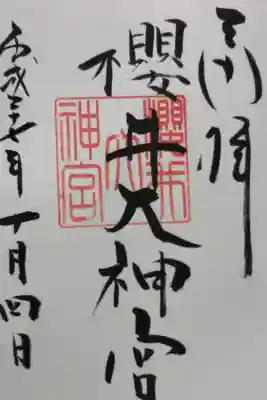 奉拝
櫻井大神宮
櫻井大神宮
平成二十七年十月四日